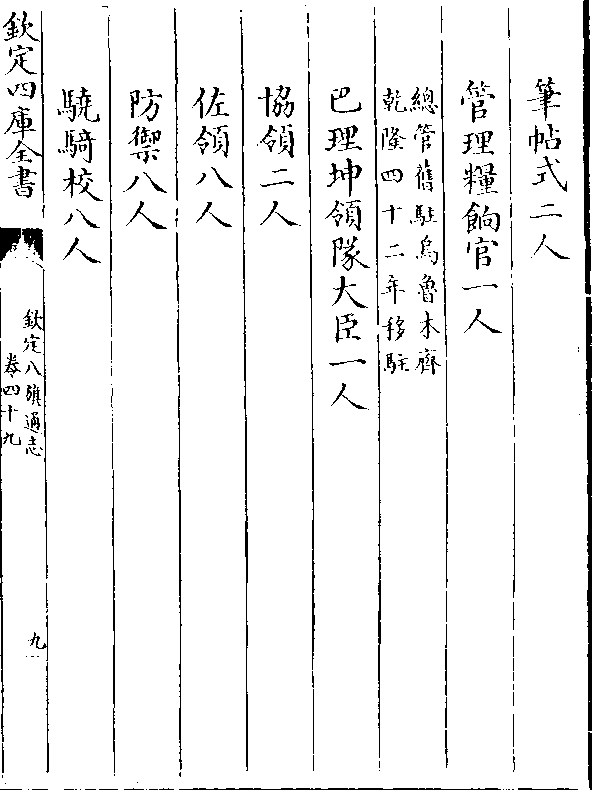 筆帖式二人
管理糧餉官一人
總管舊駐烏魯木齊
乾隆四十二年移駐
巴理坤領隊大臣一人
協領二人
佐領八人
防禦八人
驍騎校八人
欽定四庫全書
欽定八旗通志
卷四十九
九